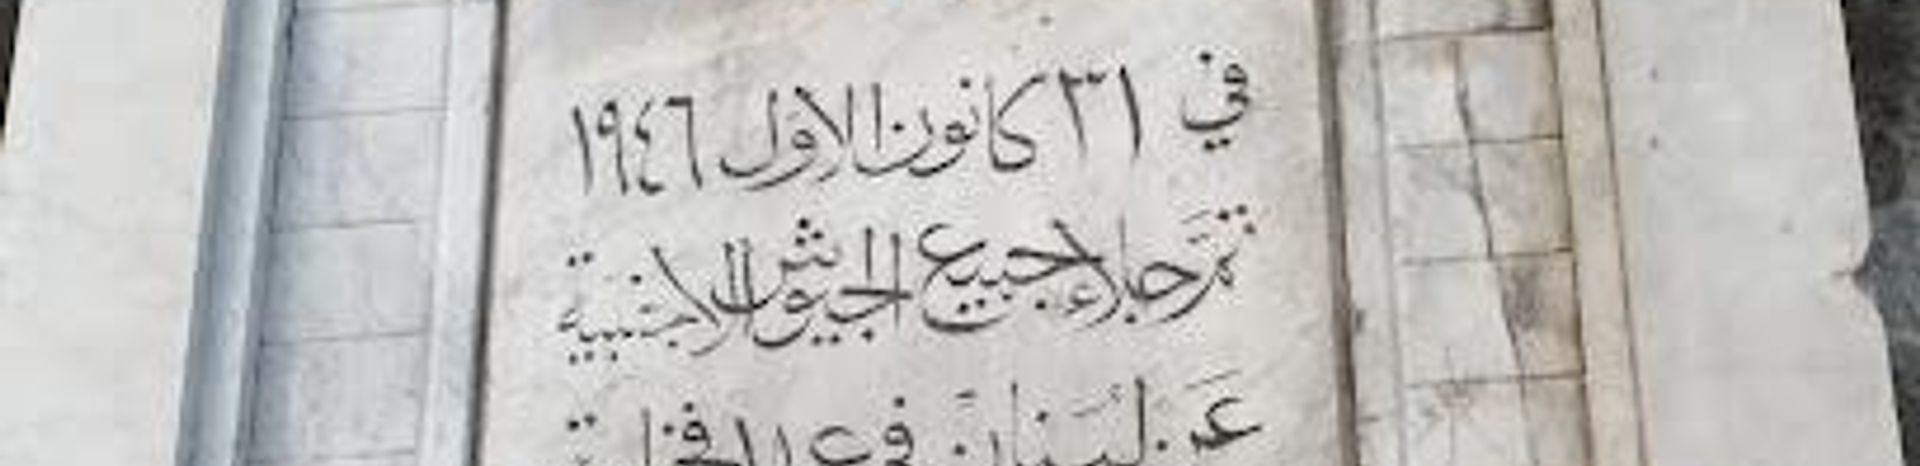 في ٣١ كانون الاول ١٩٤٦
تمّ جلاء جميع الجيوش الاجنبية
عَن لبنَان في عهد فخامة